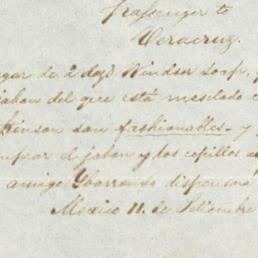 Passenger to
Veracruz.
gar de 2 doz⁵ Windsor Soap,
jabon del que está mesclado
Kinson son fashionables - y
mprar el jabon y los cepillos
amigo Ybarrondo dispensará
México 11. de Setiembre